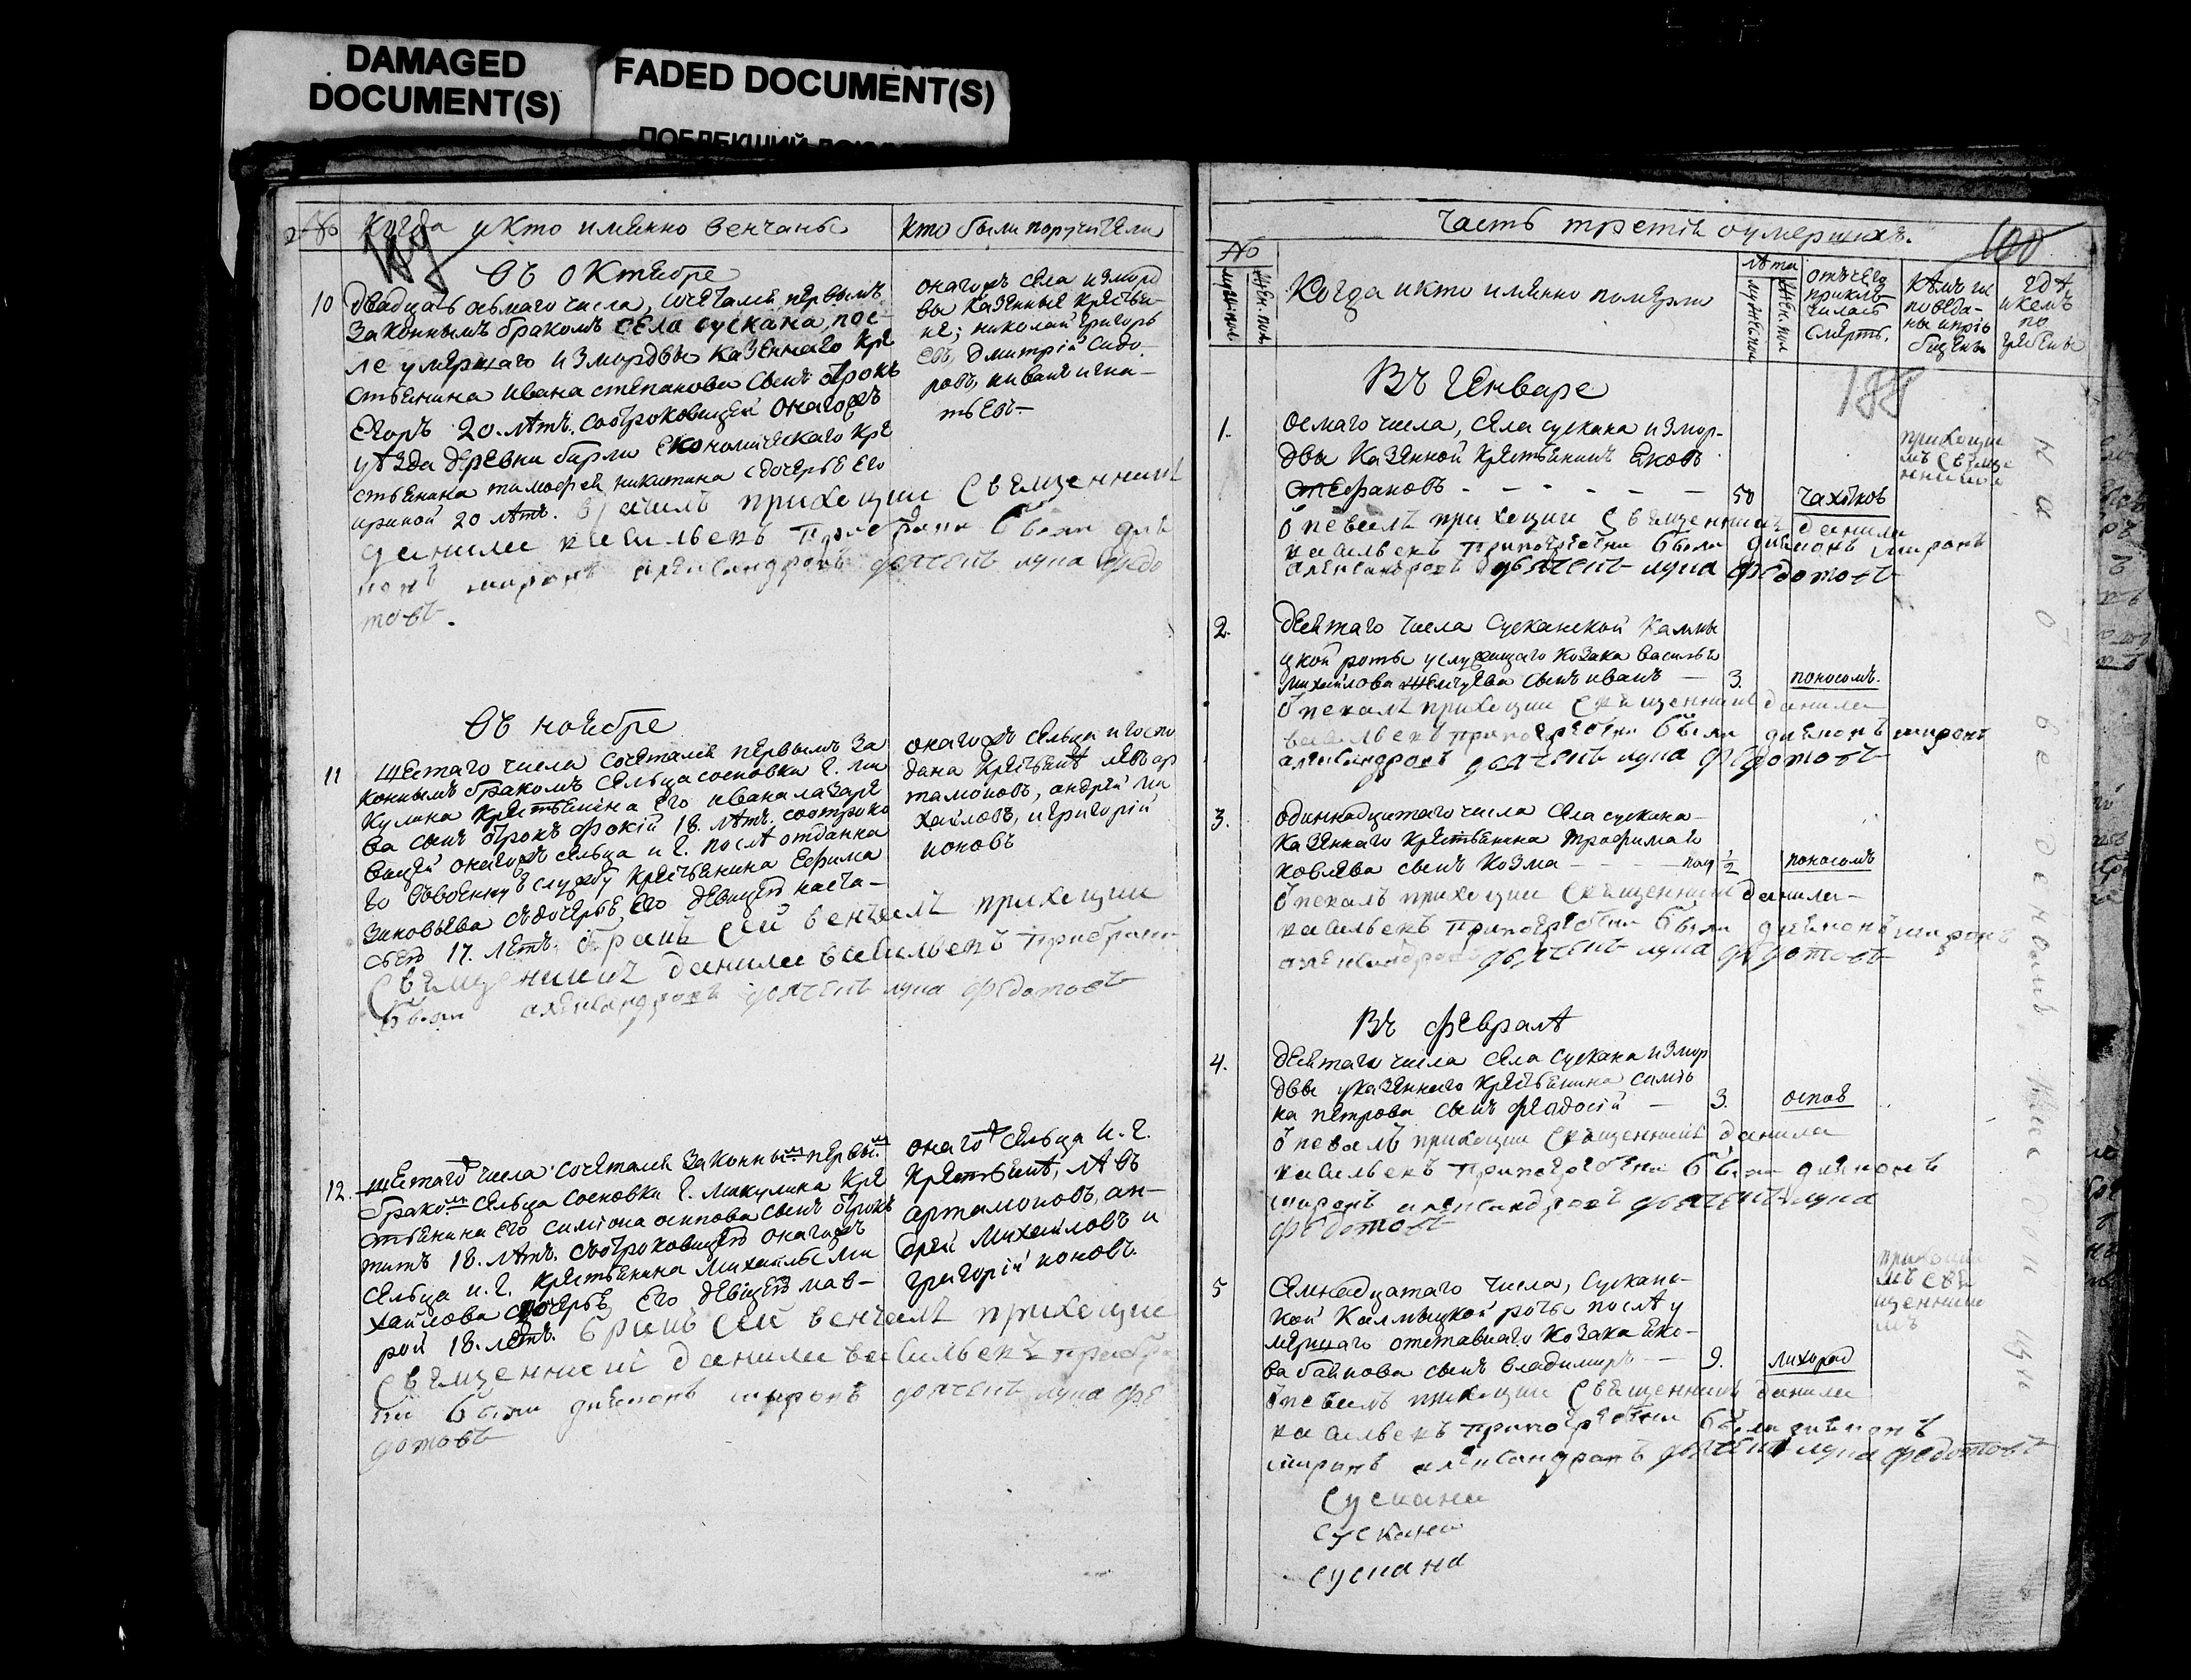 DAMAGED
DOCUMENT(S)
FADED DOCUMENT(S)
№
Когда и кто именно венчаны
кто были поручители
Въ Октебре
10
двадцать осьмаго числа, сочетался первымъ
законнымъ бракомъ села сускана пос-
ле умершаго из мордвы казеннаго кре
стьянина ивана степанова сынъ отрокъ
Егоръ 20. летъ. со отроковицей онагожъ
уезда деревни бирли економическаго кре
стьянина тимофея никитина с дочерью его
ириной 20 летъ. венчалъ приходцки священникъ
данила васильевъ при браке были дья
конъ миронъ александровъ дьячекъ лука федо
товъ.
онагожъ села из морд
вы казенные крестья-
не; николай григорь
евъ, дмитрий сидо-
ровъ, и иванъ игна-
тьевъ-
Въ ноебре
11
шестаго числа сочетался первымъ за
коннымъ бракомъ сельца сосновки г. ми
кулина крестьянина его ивана лазаре
ва сынъ отрокъ фокий 18. летъ. со отроко
вицей онагожъ сельца и г. после отданна
го въ военную службу крестьянина Ефима
зиновьева съ дочерью его девицею наста-
сьею 17. летъ. бракъ сей венчалъ приходцки
священникъ данила васильевъ при браке
были александровъ дьячекъ лука федотовъ
онагожъ сельца и госпо
дина крестьяне левъ ар
тамоновъ, андрей ми
хайловъ, и григорий
коновъ
12.
шестаго числа сочетался законнымъ первымъ
бракомъ сельца сосновки г. микулина кре
стьянина его симиона осипова сынъ отрокъ
титъ 18. летъ. съ отроковицею онагожъ
сельца и. г. крестьянина михаилы ми
хайлова с дочерью его девицею мав-
рой 18. летъ. бракъ сей венчалъ приходцки
священникъ данила васильевъ при бра
ке были дьяконъ миронъ дьячекъ лука фе
дотовъ
онагожъ сельца и. г.
крестьяне, левъ
артамоновъ, ан-
дрей михайловъ и
григорий коновъ.
Часть третия о умершихъ.
100
№
мужеск пол
жен. пол
Когда и кто именно померли
лета
мужеск пол
жен. пол
отъ чего
приклю-
чилась
смерть.
кемъ ис
поведа-
ны и прио
бщены
где
и кемъ
по
гребены
188
Въ Генваре
1.
осмаго числа, села сускана из мор-
двы казенной крестьянинъ Яковъ
стефановъ - - - - - -
50
чахоткою
приходцки
мъ священ
никомъ
отпевалъ приходцки священникъ данила
васильевъ при погребении были дьяконъ миронъ
александровъ дьячекъ лука федотовъ
2.
девятаго числа сусканской калмы
цкой роты услужащаго козака василья
михайлова сынъ иванъ —
3.
поносомъ.
отпевалъ приходцки священникъ данила
васильевъ при погребении были дьяконъ миронъ
александровъ дьячекъ лука федотовъ
3.
одиннадцатаго числа села сускана
казеннаго крестьянина трофима я
ковлева сынъ козма - - -
1/2
поносомъ
отпевалъ приходцки священникъ данила-
васильевъ при погребении были дьяконъ миронъ
александровъ дьячекъ лука федотовъ
Въ феврале
4.
девятаго числа села сускана из мор
двы у казеннаго крестьянина симио
на петрова сынъ феодосий —
3.
оспою
отпевалъ приходцки священникъ данила
васильевъ при погребении были дьяконъ
миронъ александровъ дьячекъ лука
федотовъ
5
семнадцатаго числа, сусканс-
кой калмыцкой роты после у
мершаго отставнаго козака Яко-
ва байкова сынъ владимиръ —
9.
лихорад
приходцки
мъ свя
щеннико
мъ
отпевалъ приходцки священникъ данила
васильевъ при погребении были дьяконъ
миронъ александровъ дьячекъ лука федотовъ
Сускана
сускана
сускана